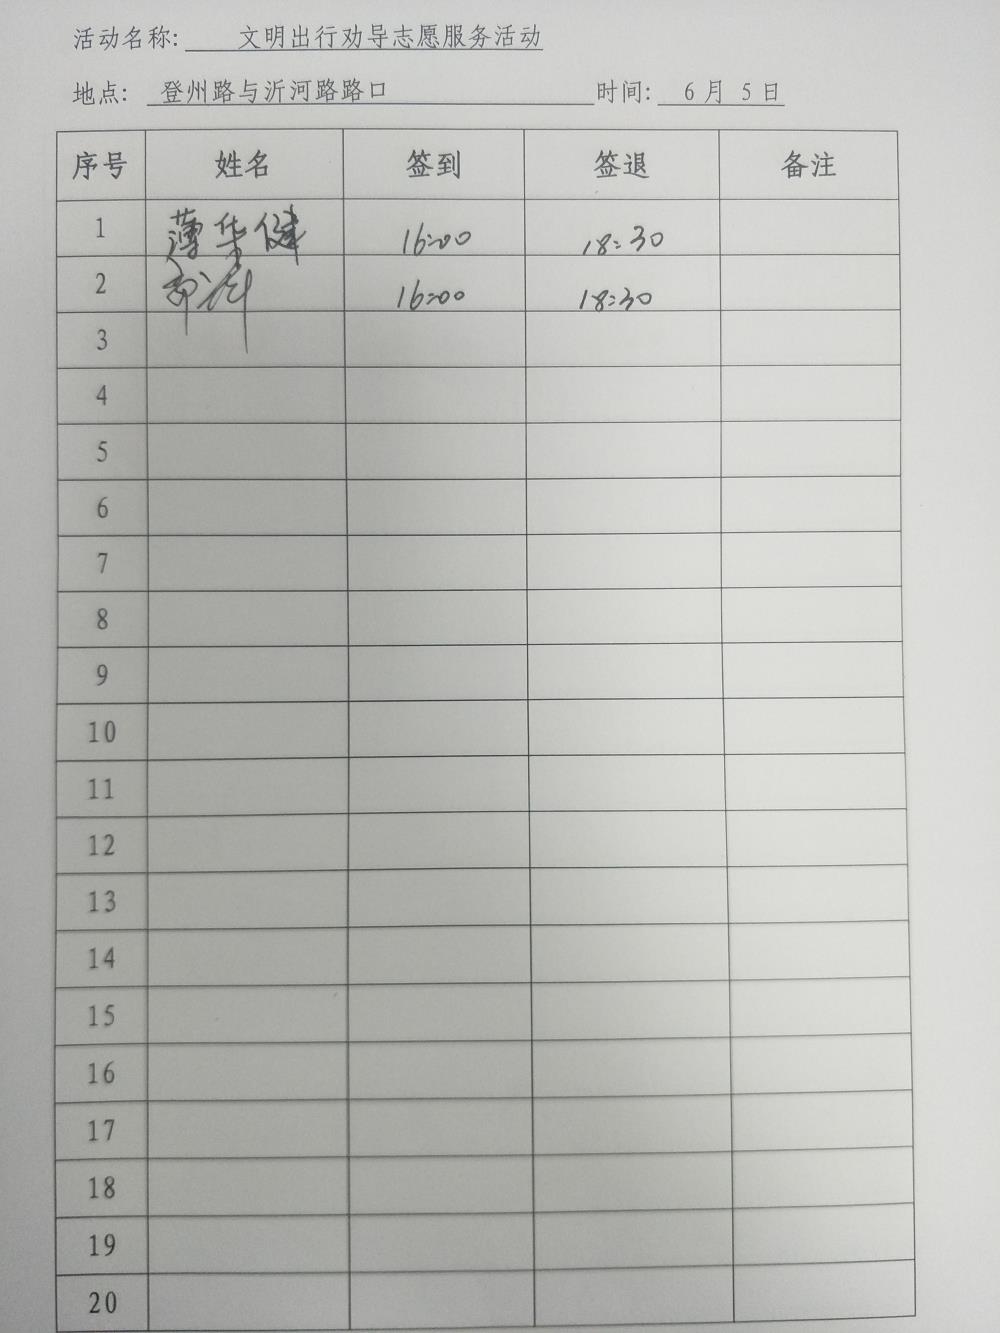 活动名称: 文明出行劝导志愿服务活动
地点: 登州路与沂河路路口 时间: 6月 5日
序号 姓名 签到 签退 备注
1 薄华健 16:00 18:30
2 16:00 18:30
3
4
5
6
7
8
9
10
11
12
13
14
15
16
17
18
19
20